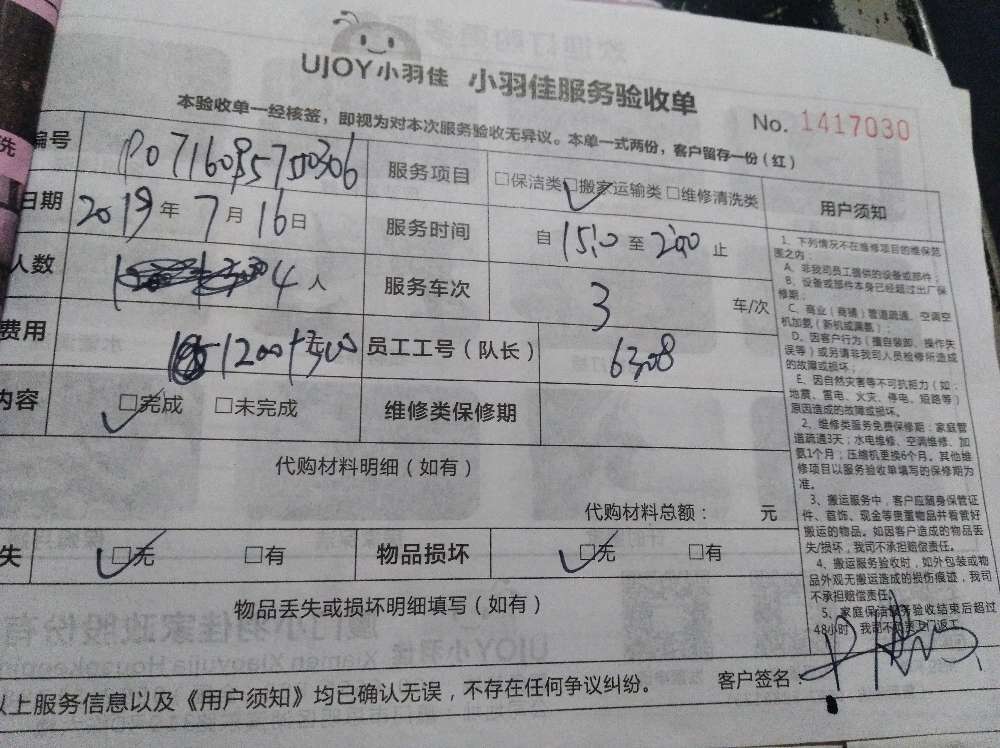 UJOY小羽佳 小羽佳服务验收单
No. 1417030
本验收单一经核签，即视为对本次服务验收无异议。本单一式两份，客户留存一份（红）
编号 服务项目 □保洁类 □搬家运输类 □维修清洗类 用户须知
日期 2019年7月16日 服务时间 自 至 止
人数 4人 服务车次 3 车/次
费用 1200 员工工号（队长） 6308
内容 □完成 □未完成 维修类保修期
代购材料明细（如有）
代购材料总额： 元
失 □无 □有 物品损坏 □无 □有
物品丢失或损坏明细填写（如有）
以上服务信息以及《用户须知》均已确认无误，不存在任何争议纠纷。 客户签名：
1、下列情况不在维修项目的维保范
围之内：
A、非我司员工提供的设备或部件；
B、设备或部件本身已经超过出厂保
修期；
C、商业（商铺）管道疏通、空调空
机加氨（新机或漏氨）；
D、因客户行为（擅自装卸、操作失
误等）或另请非我司人员检修所造成
的故障或损坏；
E、因自然灾害等不可抗拒力（如：
地震、雷电、火灾、停电、短路等）
原因造成的故障或损坏。
2、维修类服务免费保修期：家庭管
道疏通3天；水电维修、空调维修、加
氨1个月；压缩机更换6个月。其他维
修项目以服务验收单填写的保修期为
准。
3、搬运服务中，客户应随身保管证
件、首饰、现金等贵重物品并看管好
搬运的物品。如因客户造成的物品丢
失/损坏，我司不承担赔偿责任。
4、搬运服务验收时，如外包装或物
品外观无搬运造成的损伤痕迹，我司
不承担赔偿责任。
5、家庭保洁服务验收结束后超过
48小时，我司不 上门返工